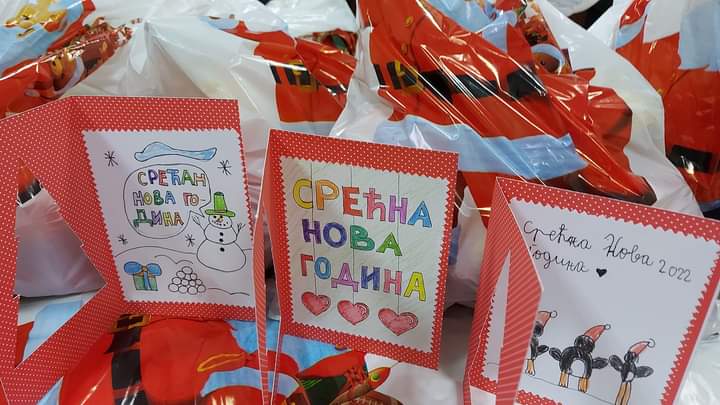 СРЕЋАН
НОВА ГО-
ДИНА
СРЕЋНА
НОВА
ГОДИНА
Срећна Нова
година ♥ 2022